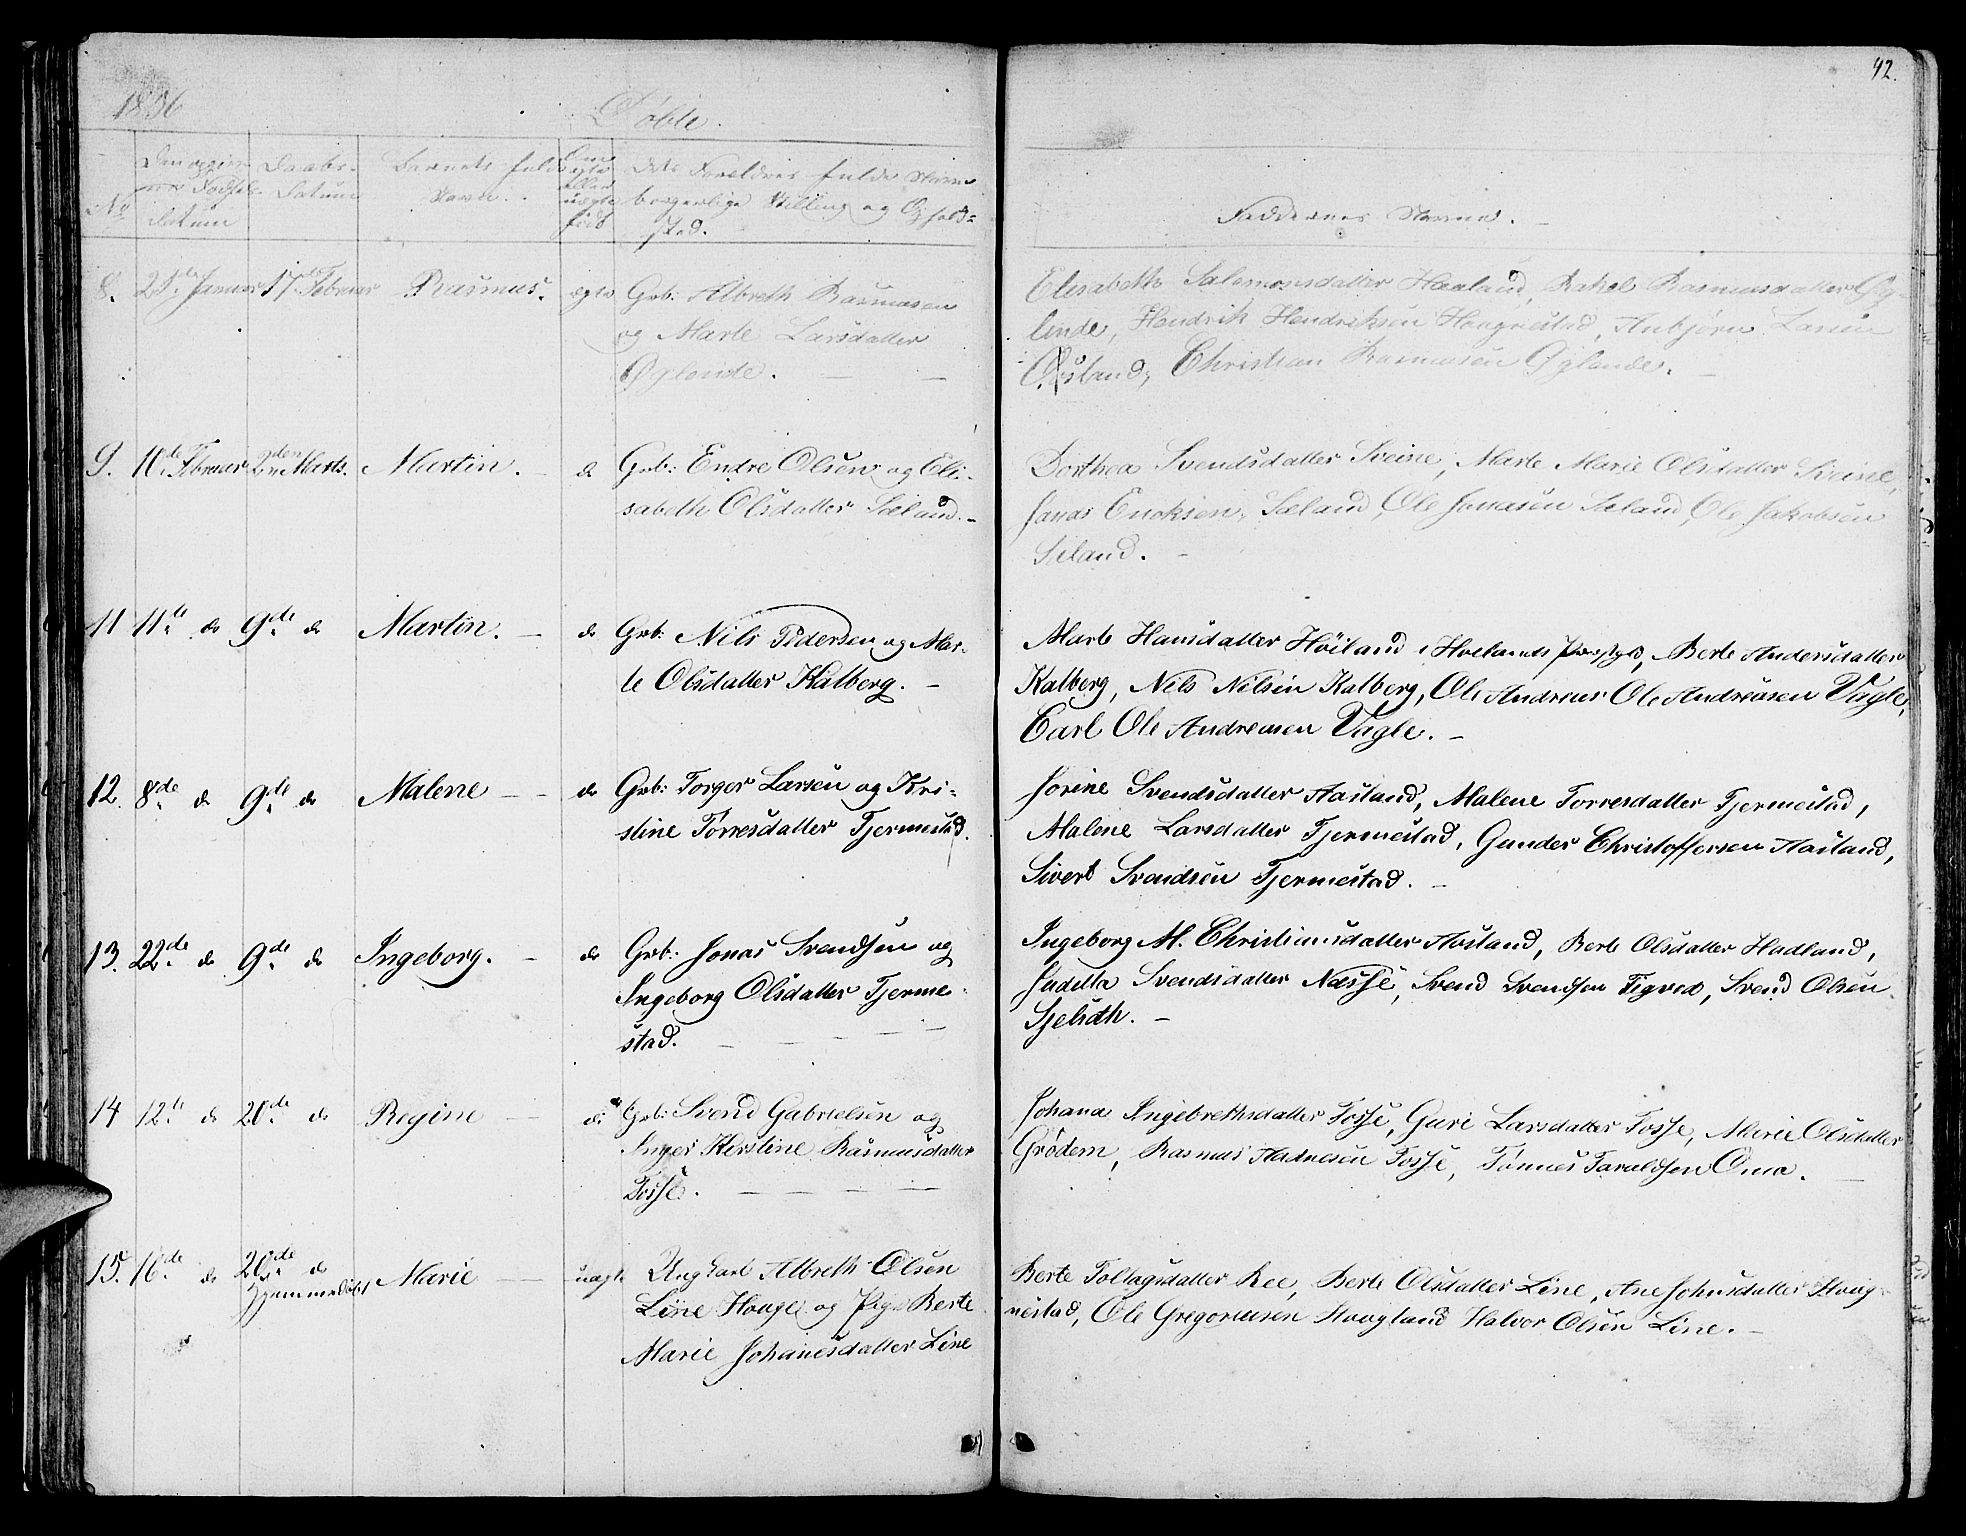 42.
1856
Døbte.
No
Datum
Daabs-
Datum
Barnets fulde
Navn.
Om
ægte
eller
uægte
født
Dets Forældres fulde Navne
borgerlige Stilling og Ophold=
sted.
Faddernes Navne.
8. 21de Januar 17de Februar Rasmus. ægte Grb: Albreth Rasmusen
og Marte Larsdatter
Øglende.
Elisabeth Salomonsdatter Haaland, Rakel Rasmusdatter Øg-
lende, Hendrik Hendriksen Haugnestad, Anbjørn Larsen
Østland, Christian Rasmusen Øglende.
9. 10de Februar 2den Marts. Martin. do Grb: Endre Olsen og Eli-
sabeth Olsdatter Sæland.
Dorthea Svendsdatter Sveine, Marte Marie Olsdatter Sveine,
Jonas Enoksen, Sæland, Ole Jonasen Sæland, Ole Jakobsen
Sæland.
11 11te do 9de do Martin. do Grb: Nils Pedersen og Mar-
te Olsdatter Kalberg.
Marte Hansdatter Høiland i Hølands Præstgld, Berte Andersdatter
Kalberg, Nels Nelsen Kalberg, Ole Andreas Ole Andreasen Vagle,
Carl Ole Andreasen Vagle.
12. 8de do 9de do Malene do Grb: Torger Larsen og Kri-
stine Torresdatter Tjermestad.
Jorine Svendsdatter Aasland, Malene Torresdatter Tjermestad,
Malene Larsdatter Tjermestad, Gunder Christoffersen Aasland,
Sivert Svendsen Tjermestad.
13. 22de do 9de do Ingeborg. do Grb: Jonas Svendsen og
Ingeborg Olsdatter Tjerme-
stad.
Ingeborg M. Christiansdatter Aasland, Berte Olsdatter Hadland,
Judetta Svendsdatter Næsse, Svend Svendsen Tegvea, Svend Olsen
Sjelsdth.
14 12te do 20de do Regine do Grb: Svend Gabrielsen og
Inger Kerstine Rasmusdatter
Fosse.
Johana Ingebrethsdatter Fosse, Guri Larsdatter Fosse, Marie Olsdatter
Grødem, Rasmus Aadnesen Fosse, Tønnes Taraldsen Oma.
15. 16de do 20de do Marie uægte Ungkarl Albreth Olsen
Hjemmedøbt
Line Hauge og Pige Berte
Marie Johanesdatter Line
Berte Tollagsdatter Ree, Berte Olsdatter Line, Ane Johnsdatter Haug-
nestad, Ole Gregoriusen Haugland Halvor Olsen Line.